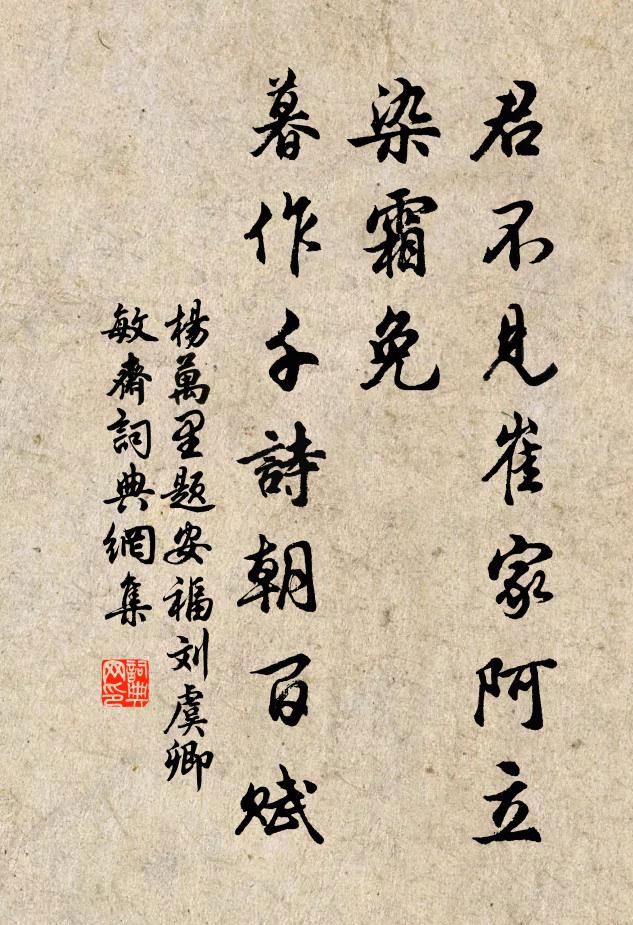 君不見崔家阿立
染霜免
暮作千詩朝百賦
楊萬里題安福刘虞卿
敏齋詞典網集
詞典网印